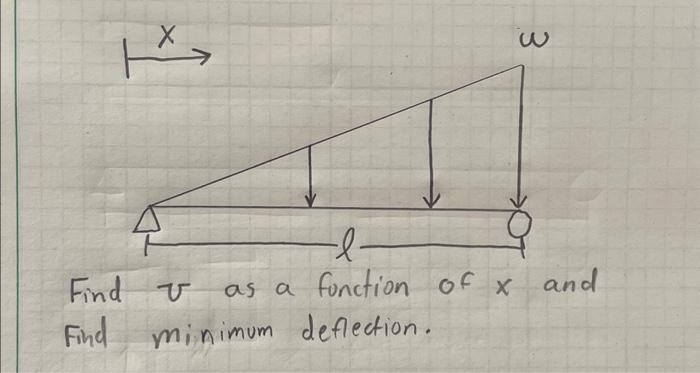 x
w
l
Find v as a function of x and
Find minimum deflection.